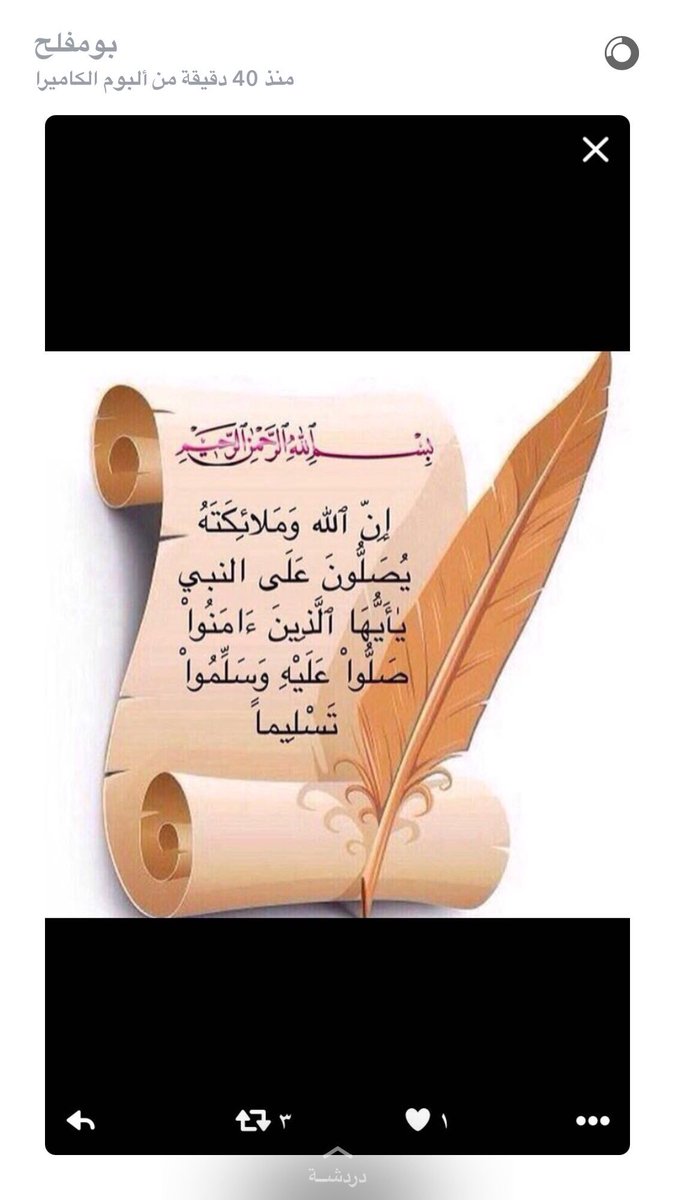 بومفلح
منذ 40 دقيقة من ألبوم الكاميرا
بِسْمِ ٱللَّهِ ٱلرَّحْمَٰنِ ٱلرَّحِيمِ
إِنّ ٱلله وَمَلائِكَتَهُ
يُصَلُّونَ عَلَى النبي
يٰأَيُّهَا ٱلَّذِينَ ءَامَنُواْ
صَلُّواْ عَلَيْهِ وَسَلِّمُواْ
تَسْلِيماً
٣ ١
دردشــة